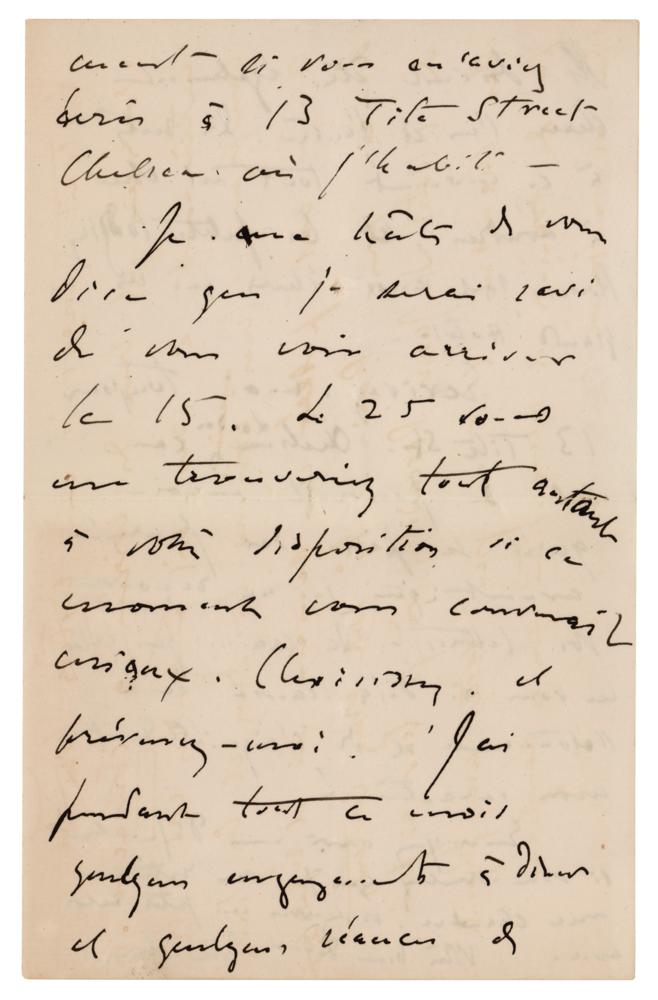 ment si vous m'aviez
écrit à 13 Tite Street
Chelsea. où j'habite —
Je me hâte de vous
dire que je serai ravi
de vous voir arriver
le 15. Le 25 vous
me trouveriez tout autant
à votre disposition si ce
moment vous convenait
mieux. Choisissez. et
prévenez-moi. J'ai
pendant tout ce mois
quelques engagements à diner
et quelques séances de